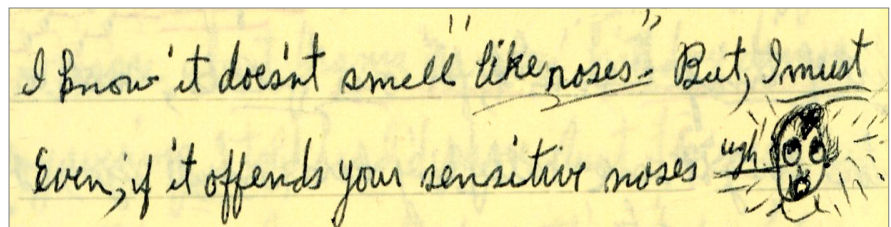 I know it doesn't smell "like roses". But, I must
Even, if it offends your sensitive noses "ugh